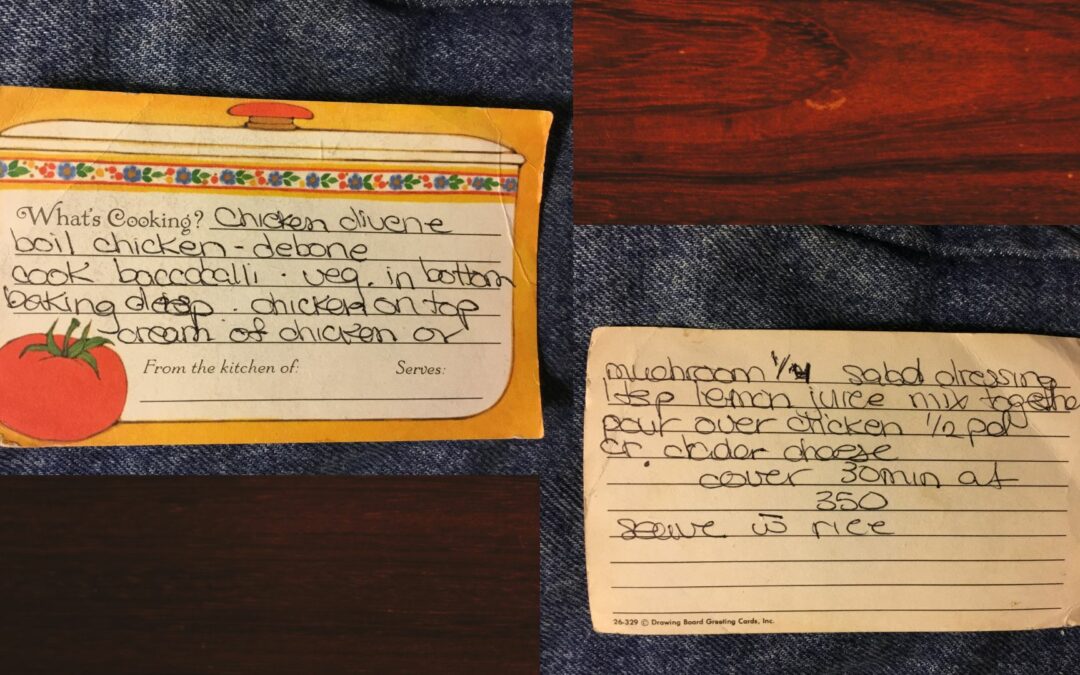 What's Cooking? Chicken divene
boil chicken - debone
cook baccoballi . veg. in bottom
baking . chicken on top
cream of chicken or
From the kitchen of: Serves:
mushroom 1/4 salad dressing
1 tsp lemon juice mix together
pour over chicken 1/2 
cr. chedar cheese
cover 30min at
350
seerve w̄ rice
26-329 © Drawing Board Greeting Cards, Inc.